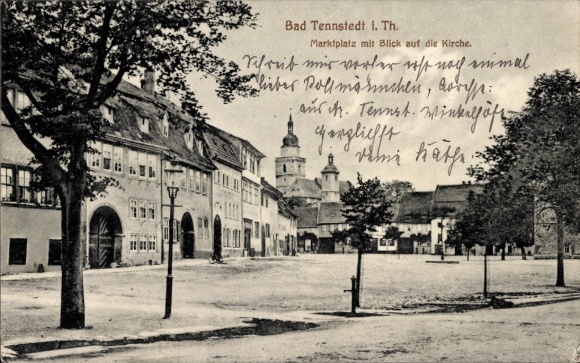 Bad Tennstedt i. Th.
Marktplatz mit Blick auf die Kirche.
Schreib mir vorher erst noch einmal
lieber
aus A. Tennst.
Herzlichst
Deine Käthe